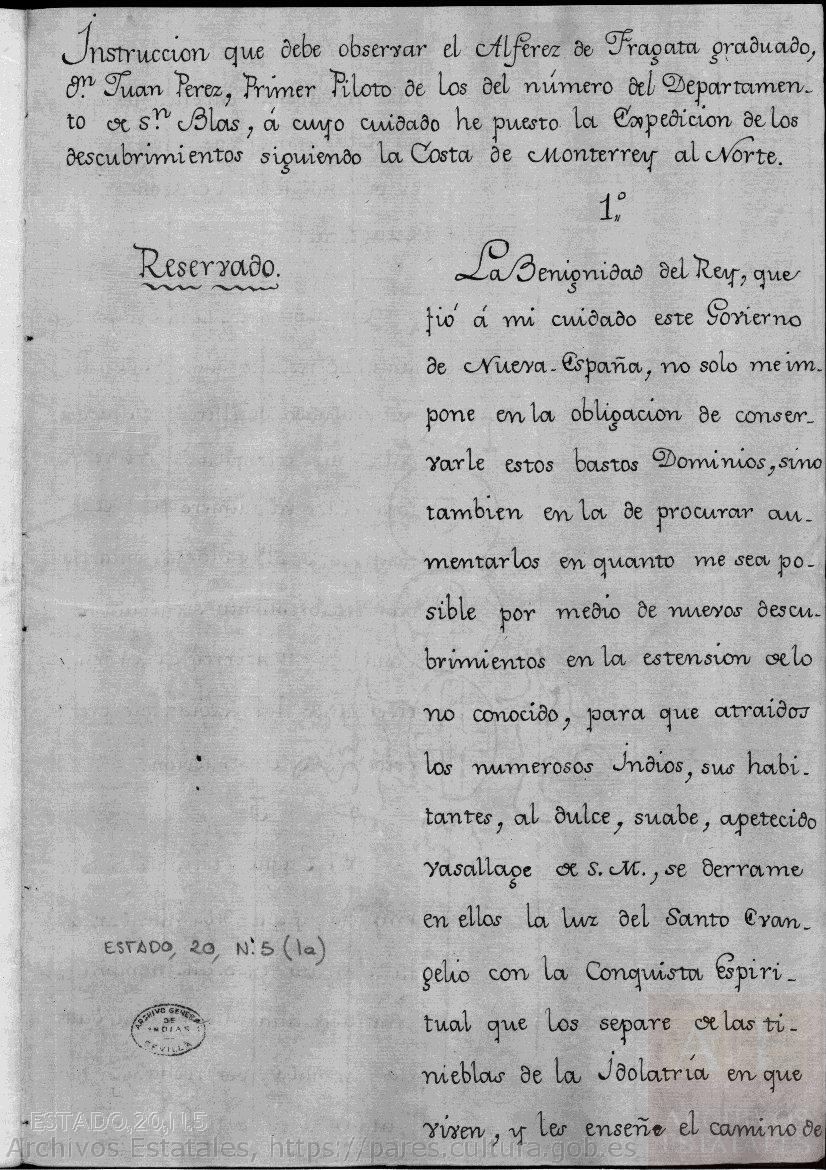 Instruccion que debe observar el Alferez de Fragata graduado,
d.n Juan Perez, Primer Piloto de los del número del Departamen-
to de S.n Blas, á cuyo cuidado he puesto la Expedicion de los
descubrimientos siguiendo la Costa de Monterrey al Norte.
1.º
Reservado.
La Benignidad del Rey, que
fió á mi cuidado este Govierno
de Nueva-España, no solo me im-
pone en la obligacion de conser-
varle estos bastos Dominios, sino
tambien en la de procurar au-
mentarlos en quanto me sea po-
sible por medio de nuevos descu-
brimientos en la estension de lo
no conocido, para que atraidos
los numerosos Indios, sus habi-
tantes, al dulce, suabe, apetecido
vasallage de S. M., se derrame
en ellos la luz del Santo Evan-
gelio con la Conquista Espiri-
tual que los separe de las ti-
nieblas de la Idolatría en que
viven, y les enseñe el camino de
ESTADO, 20, N.º 5 (1a)
ARCHIVO GENERAL
DE
INDIAS
SEVILLA
ESTADO,20,N.5
Archivos Estatales, https://pares.cultura.gob.es